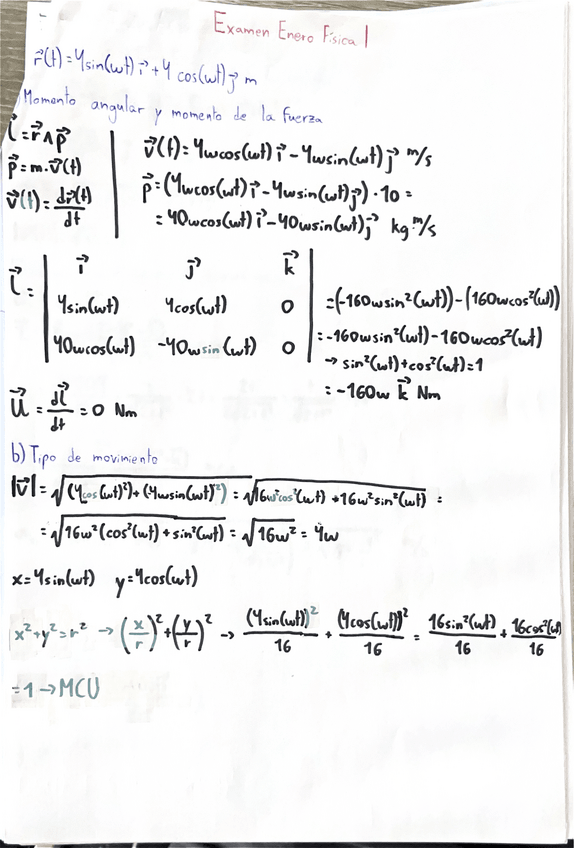 Examen Enero Física 1
r⃗(t)=4sin(ωt)i⃗+4 cos(ωt)j⃗ m
Momento angular y momento de la fuerza
l⃗=r⃗∧p⃗
p⃗=m·v⃗(t)
v⃗(t)=dr⃗(t)/dt
v⃗(t)=4ωcos(ωt)i⃗-4ωsin(ωt)j⃗ m/s
p⃗=(4ωcos(ωt)i⃗-4ωsin(ωt)j⃗)·10=
=40ωcos(ωt)i⃗-40ωsin(ωt)j⃗ kg·m/s
l⃗= | i⃗ j⃗ k⃗ |
| 4sin(ωt) 4cos(ωt) 0 | =(-160ωsin²(ωt))-(160ωcos²(ωt))
| 40ωcos(ωt) -40ωsin(ωt) 0 | =-160ωsin²(ωt)-160ωcos²(ωt)
→ sin²(ωt)+cos²(ωt)=1
=-160ω k⃗ Nm
M⃗=dl⃗/dt=0 Nm
b) Tipo de movimiento
|v⃗|=√((4cos(ωt)²)+(4ωsin(ωt)²)=√16ω²cos²(ωt)+16ω²sin²(ωt) =
=√16ω²(cos²(ωt)+sin²(ωt))=√16ω²=4ω
x=4sin(ωt) y=4cos(ωt)
x²+y²=r² →(x/r)²+(y/r)² → (4sin(ωt))²/16 + (4cos(ωt))²/16 = 16sin²(ωt)/16 + 16cos²(ωt)/16
=1→MCU